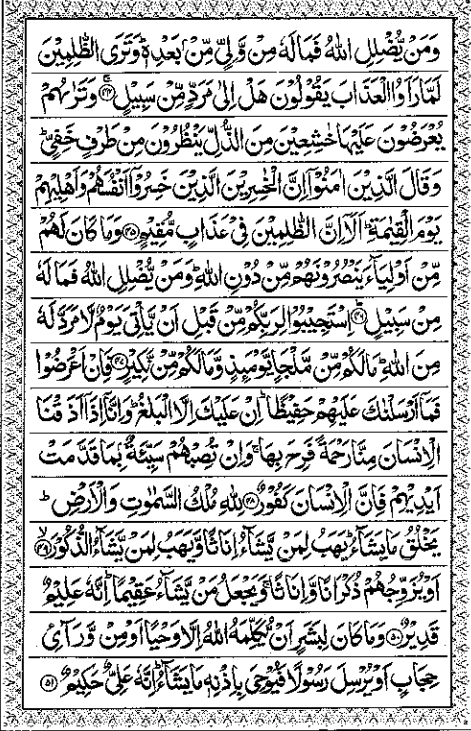 وَمَنْ يُّضْلِلِ اللّٰهُ فَمَا لَهٗ مِنْ وَّلِیٍّ مِّنْۢ بَعْدِهٖ ؕ وَتَرَی الظّٰلِمِیْنَ
لَمَّا رَاَوُا الْعَذَابَ یَقُوْلُوْنَ هَلْ اِلٰی مَرَدٍّ مِّنْ سَبِیْلٍ ۚ‏﴿۴۴﴾ وَتَرٰىهُمْ
یُعْرَضُوْنَ عَلَیْهَا خٰشِعِیْنَ مِنَ الذُّلِّ یَنْظُرُوْنَ مِنْ طَرْفٍ خَفِیٍّ ؕ
وَقَالَ الَّذِیْنَ اٰمَنُوْۤا اِنَّ الْخٰسِرِیْنَ الَّذِیْنَ خَسِرُوْۤا اَنْفُسَهُمْ وَاَهْلِیْهِمْ
یَوْمَ الْقِیٰمَةِ ؕ اَلَاۤ اِنَّ الظّٰلِمِیْنَ فِیْ عَذَابٍ مُّقِیْمٍ ﴿۴۵﴾ وَمَا كَانَ لَهُمْ
مِّنْ اَوْلِیَآءَ یَنْصُرُوْنَهُمْ مِّنْ دُوْنِ اللّٰهِ ؕ وَمَنْ یُّضْلِلِ اللّٰهُ فَمَا لَهٗ
مِنْ سَبِیْلٍ ؕ﴿۴۶﴾ اِسْتَجِیْبُوْا لِرَبِّكُمْ مِّنْ قَبْلِ اَنْ یَّاْتِیَ یَوْمٌ لَّا مَرَدَّ لَهٗ
مِنَ اللّٰهِ ؕ مَا لَكُمْ مِّنْ مَّلْجَاٍ یَّوْمَئِذٍ وَّمَا لَكُمْ مِّنْ نَّكِیْرٍ ﴿۴۷﴾ فَاِنْ اَعْرَضُوْا
فَمَاۤ اَرْسَلْنٰكَ عَلَیْهِمْ حَفِیْظًا ؕ اِنْ عَلَیْكَ اِلَّا الْبَلٰغُ ؕ وَاِنَّاۤ اِذَاۤ اَذَقْنَا
الْاِنْسَانَ مِنَّا رَحْمَةً فَرِحَ بِهَا ۚ وَاِنْ تُصِبْهُمْ سَیِّئَةٌۢ بِمَا قَدَّمَتْ
اَیْدِیْهِمْ فَاِنَّ الْاِنْسَانَ كَفُوْرٌ ﴿۴۸﴾ لِلّٰهِ مُلْكُ السَّمٰوٰتِ وَالْاَرْضِ ؕ
یَخْلُقُ مَا یَشَآءُ ؕ یَهَبُ لِمَنْ یَّشَآءُ اِنَاثًا وَّیَهَبُ لِمَنْ یَّشَآءُ الذُّكُوْرَ ۙ﴿۴۹﴾
اَوْ یُزَوِّجُهُمْ ذُكْرَانًا وَّاِنَاثًا ۚ وَیَجْعَلُ مَنْ یَّشَآءُ عَقِیْمًا ؕ اِنَّهٗ عَلِیْمٌ
قَدِیْرٌ ﴿۵۰﴾ وَمَا كَانَ لِبَشَرٍ اَنْ یُّكَلِّمَهُ اللّٰهُ اِلَّا وَحْیًا اَوْ مِنْ وَّرَآئِ
حِجَابٍ اَوْ یُرْسِلَ رَسُوْلًا فَیُوْحِیَ بِاِذْنِهٖ مَا یَشَآءُ ؕ اِنَّهٗ عَلِیٌّ حَكِیْمٌ ﴿۵۱﴾